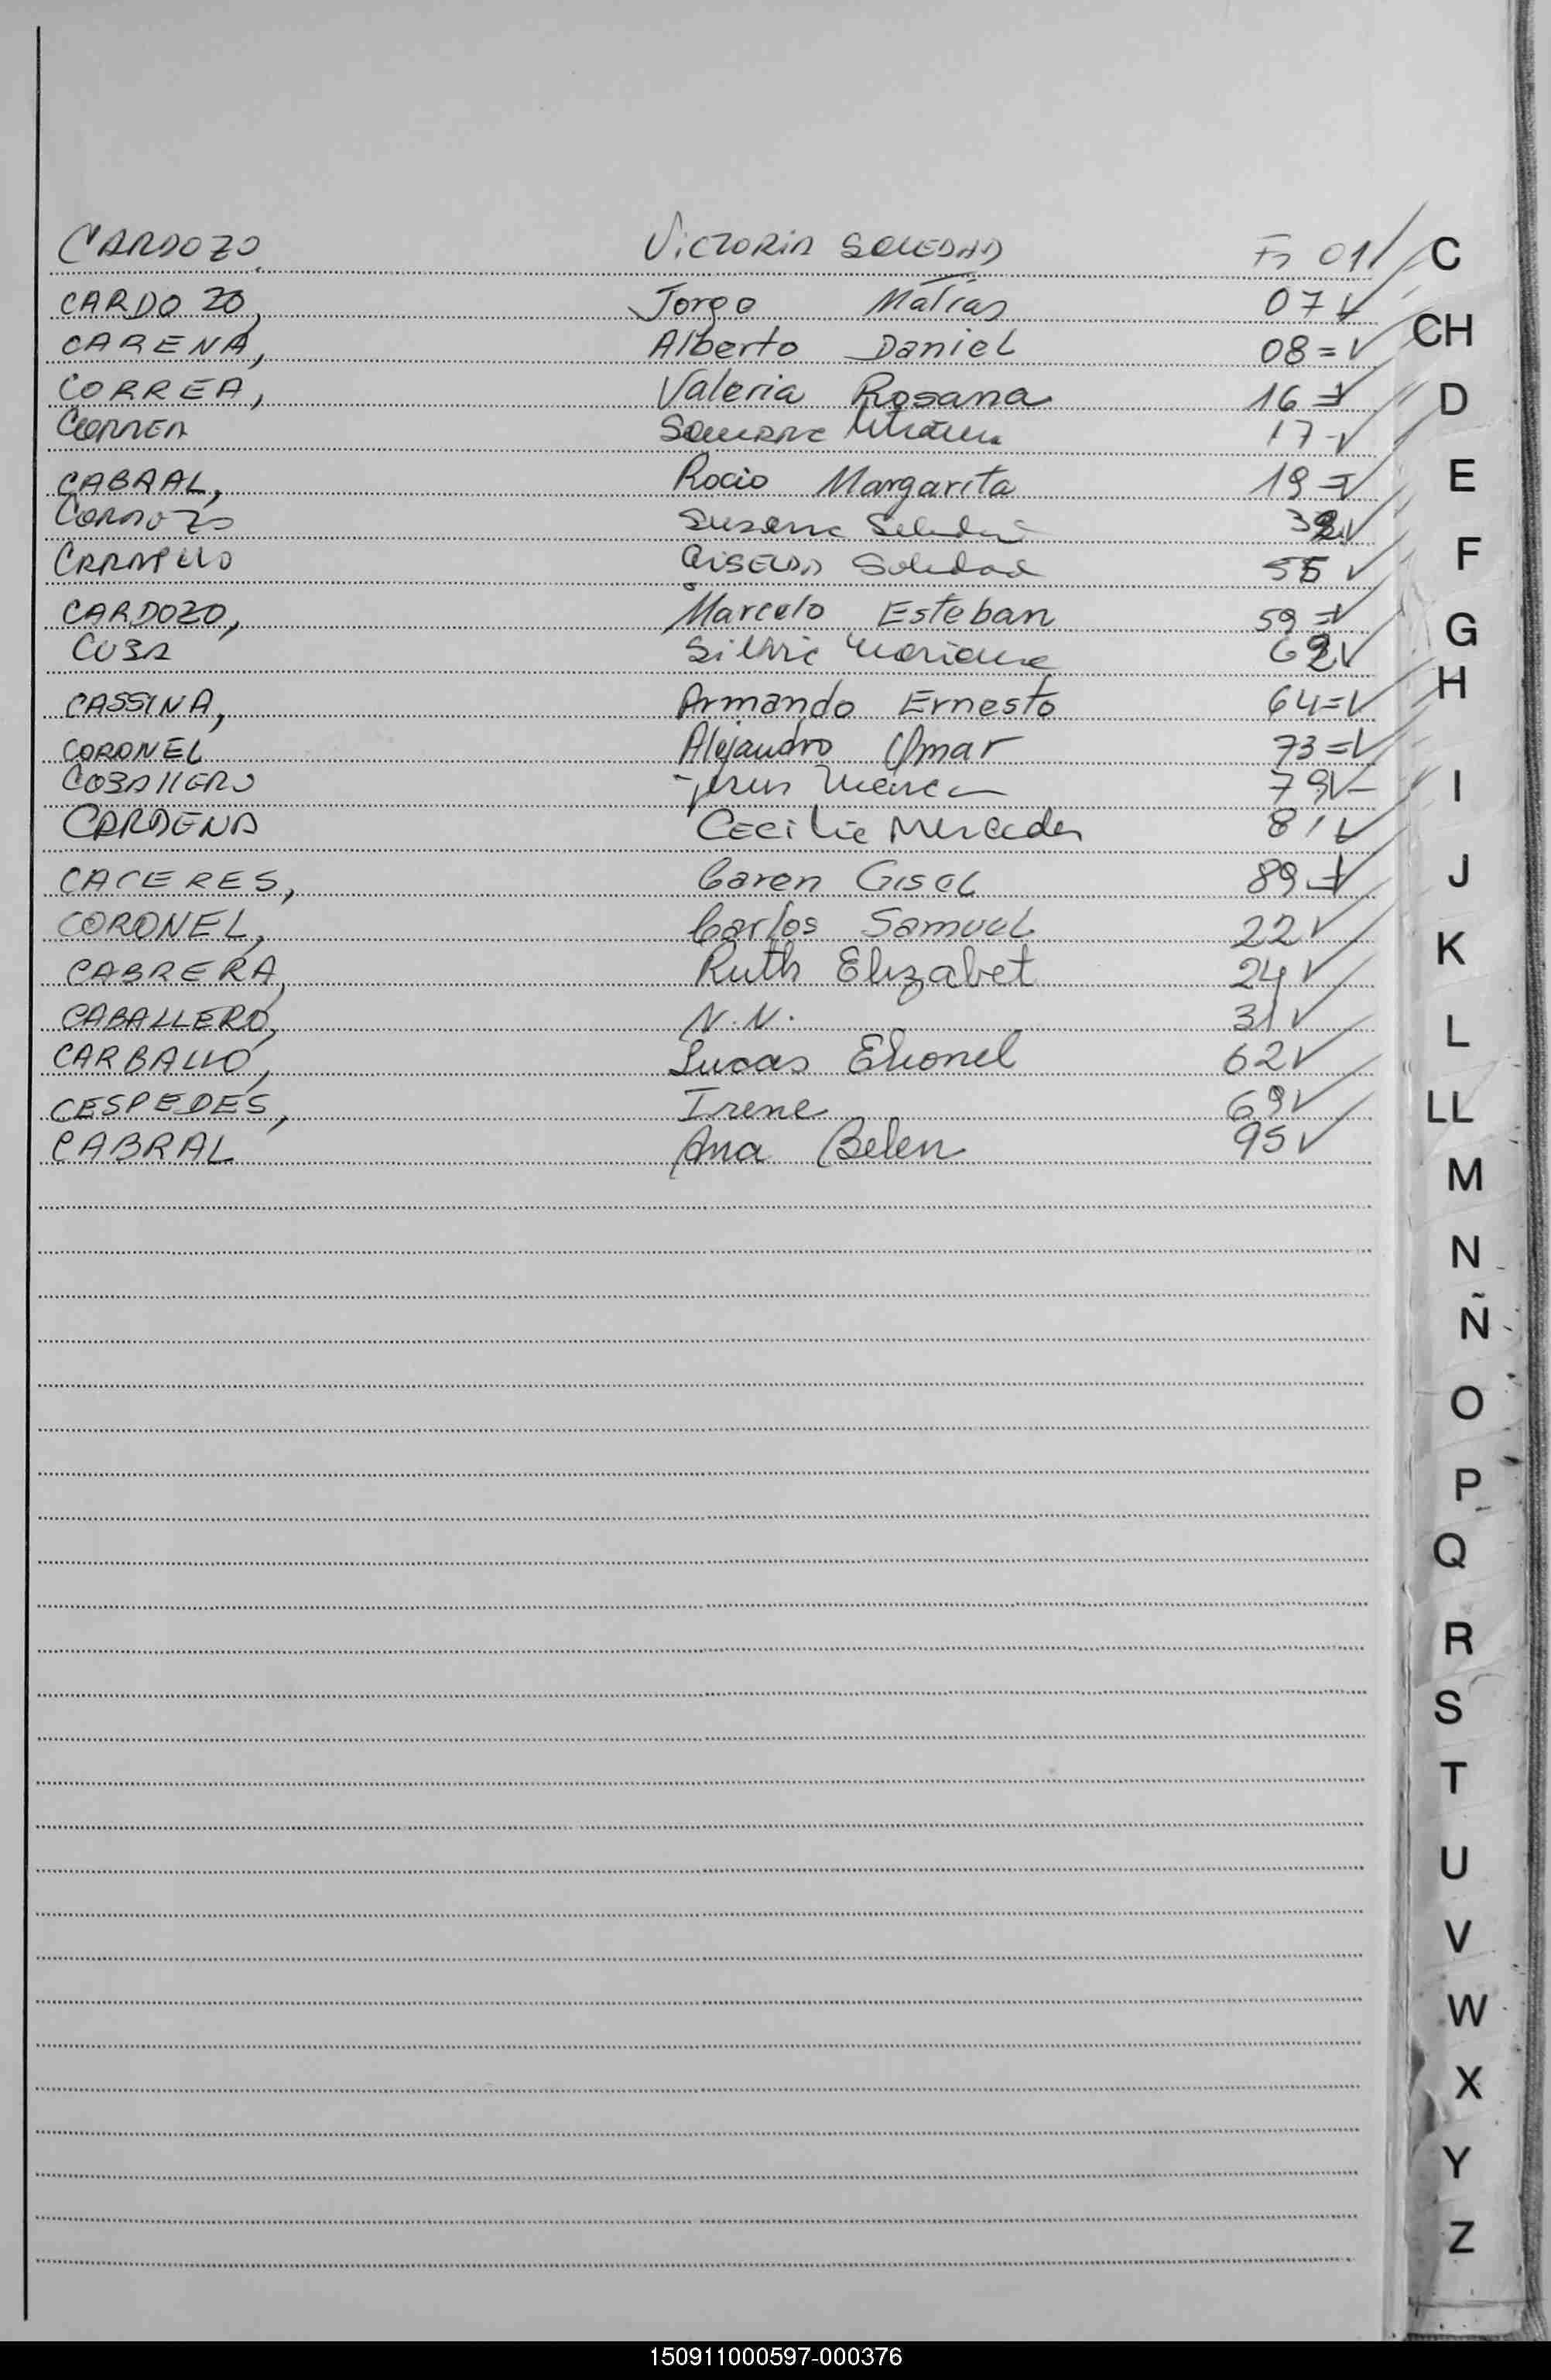 CARDOZO Victoria SOLEDAD Fs 01/ C
CARDOZO, Jorge Matías 07 ✓
CARENA, Alberto Daniel 08 = ✓ CH
CORREA, Valeria Rosana 16 = ✓ D
CORREA 17 - ✓
CABRAL, Rocio Margarita 19 = ✓ E
CARDOZO Susana Soledad ✓
CARAPELLO GISELDA Soledad 55 ✓ F
CARDOZO, Marcelo Esteban 59 = ✓ G
CUBA Silvia Mariana ✓
CASSINA, Armando Ernesto 64 = ✓ H
CORONEL Alejandro Omar 73 = ✓
CABALLERO Jesus 79 ✓ I
CARDENA Cecilia Mercedes 81 ✓
CACERES, Caren Gisel 89 = ✓ J
CORONEL, Carlos Samuel 22 ✓ K
CABRERA, Ruth Elizabet 24 ✓
CABALLERO, N.N. 31 ✓ L
CARBALLO, Lucas Elionel 62 ✓
CESPEDES, Irene 69 ✓ LL
CABRAL Ana Belen 95 ✓
M
N
Ñ
O
P
Q
R
S
T
U
V
W
X
Y
Z
150911000597-000376